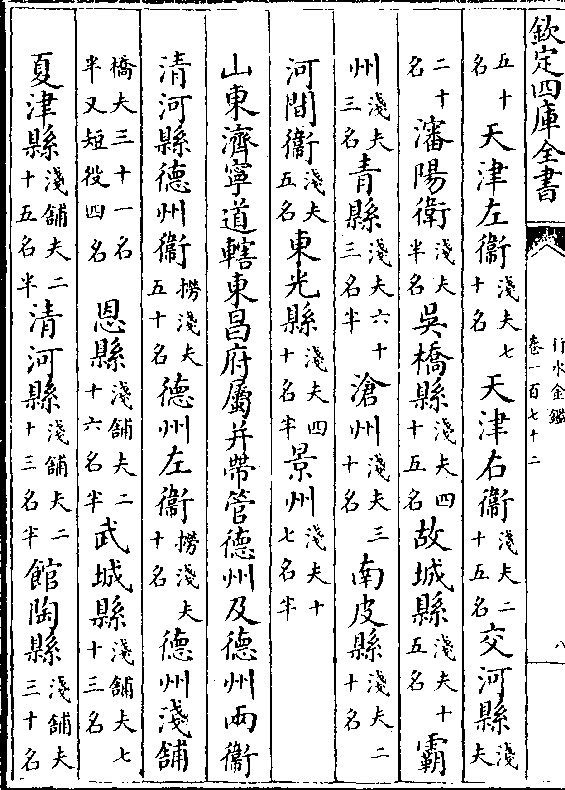 欽定四庫全書 行水金鑑 卷一百七十二 八
五十名 天津左衞 淺夫七十名 天津右衞 淺夫二十五名 交河縣 淺夫
二十名 瀋陽衛 淺夫半名 吳橋縣 淺夫四十五名 故城縣 淺夫十五名 霸
州 淺夫三名 青縣 淺夫六十三名半 滄州 淺夫三十名 南皮縣 淺夫二十名
河間衞 淺夫五名 東光縣 淺夫四十名半 景州 淺夫十七名半
山東濟寧道轄東昌府屬并帶管德州及德州兩衞
清河縣德州衞 撈淺夫五十名 德州左衞 撈淺夫十名 德州淺舖
橋夫三十一名半又短役四名 恩縣 淺舖夫二十六名半 武城縣 淺舖夫七十三名
夏津縣 淺舖夫二十五名半 清河縣 淺舖夫二十三名半 館陶縣 淺舖夫三十名